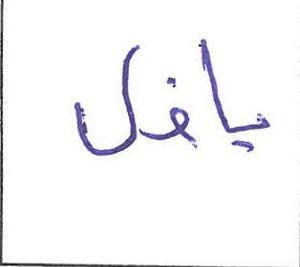 يافل